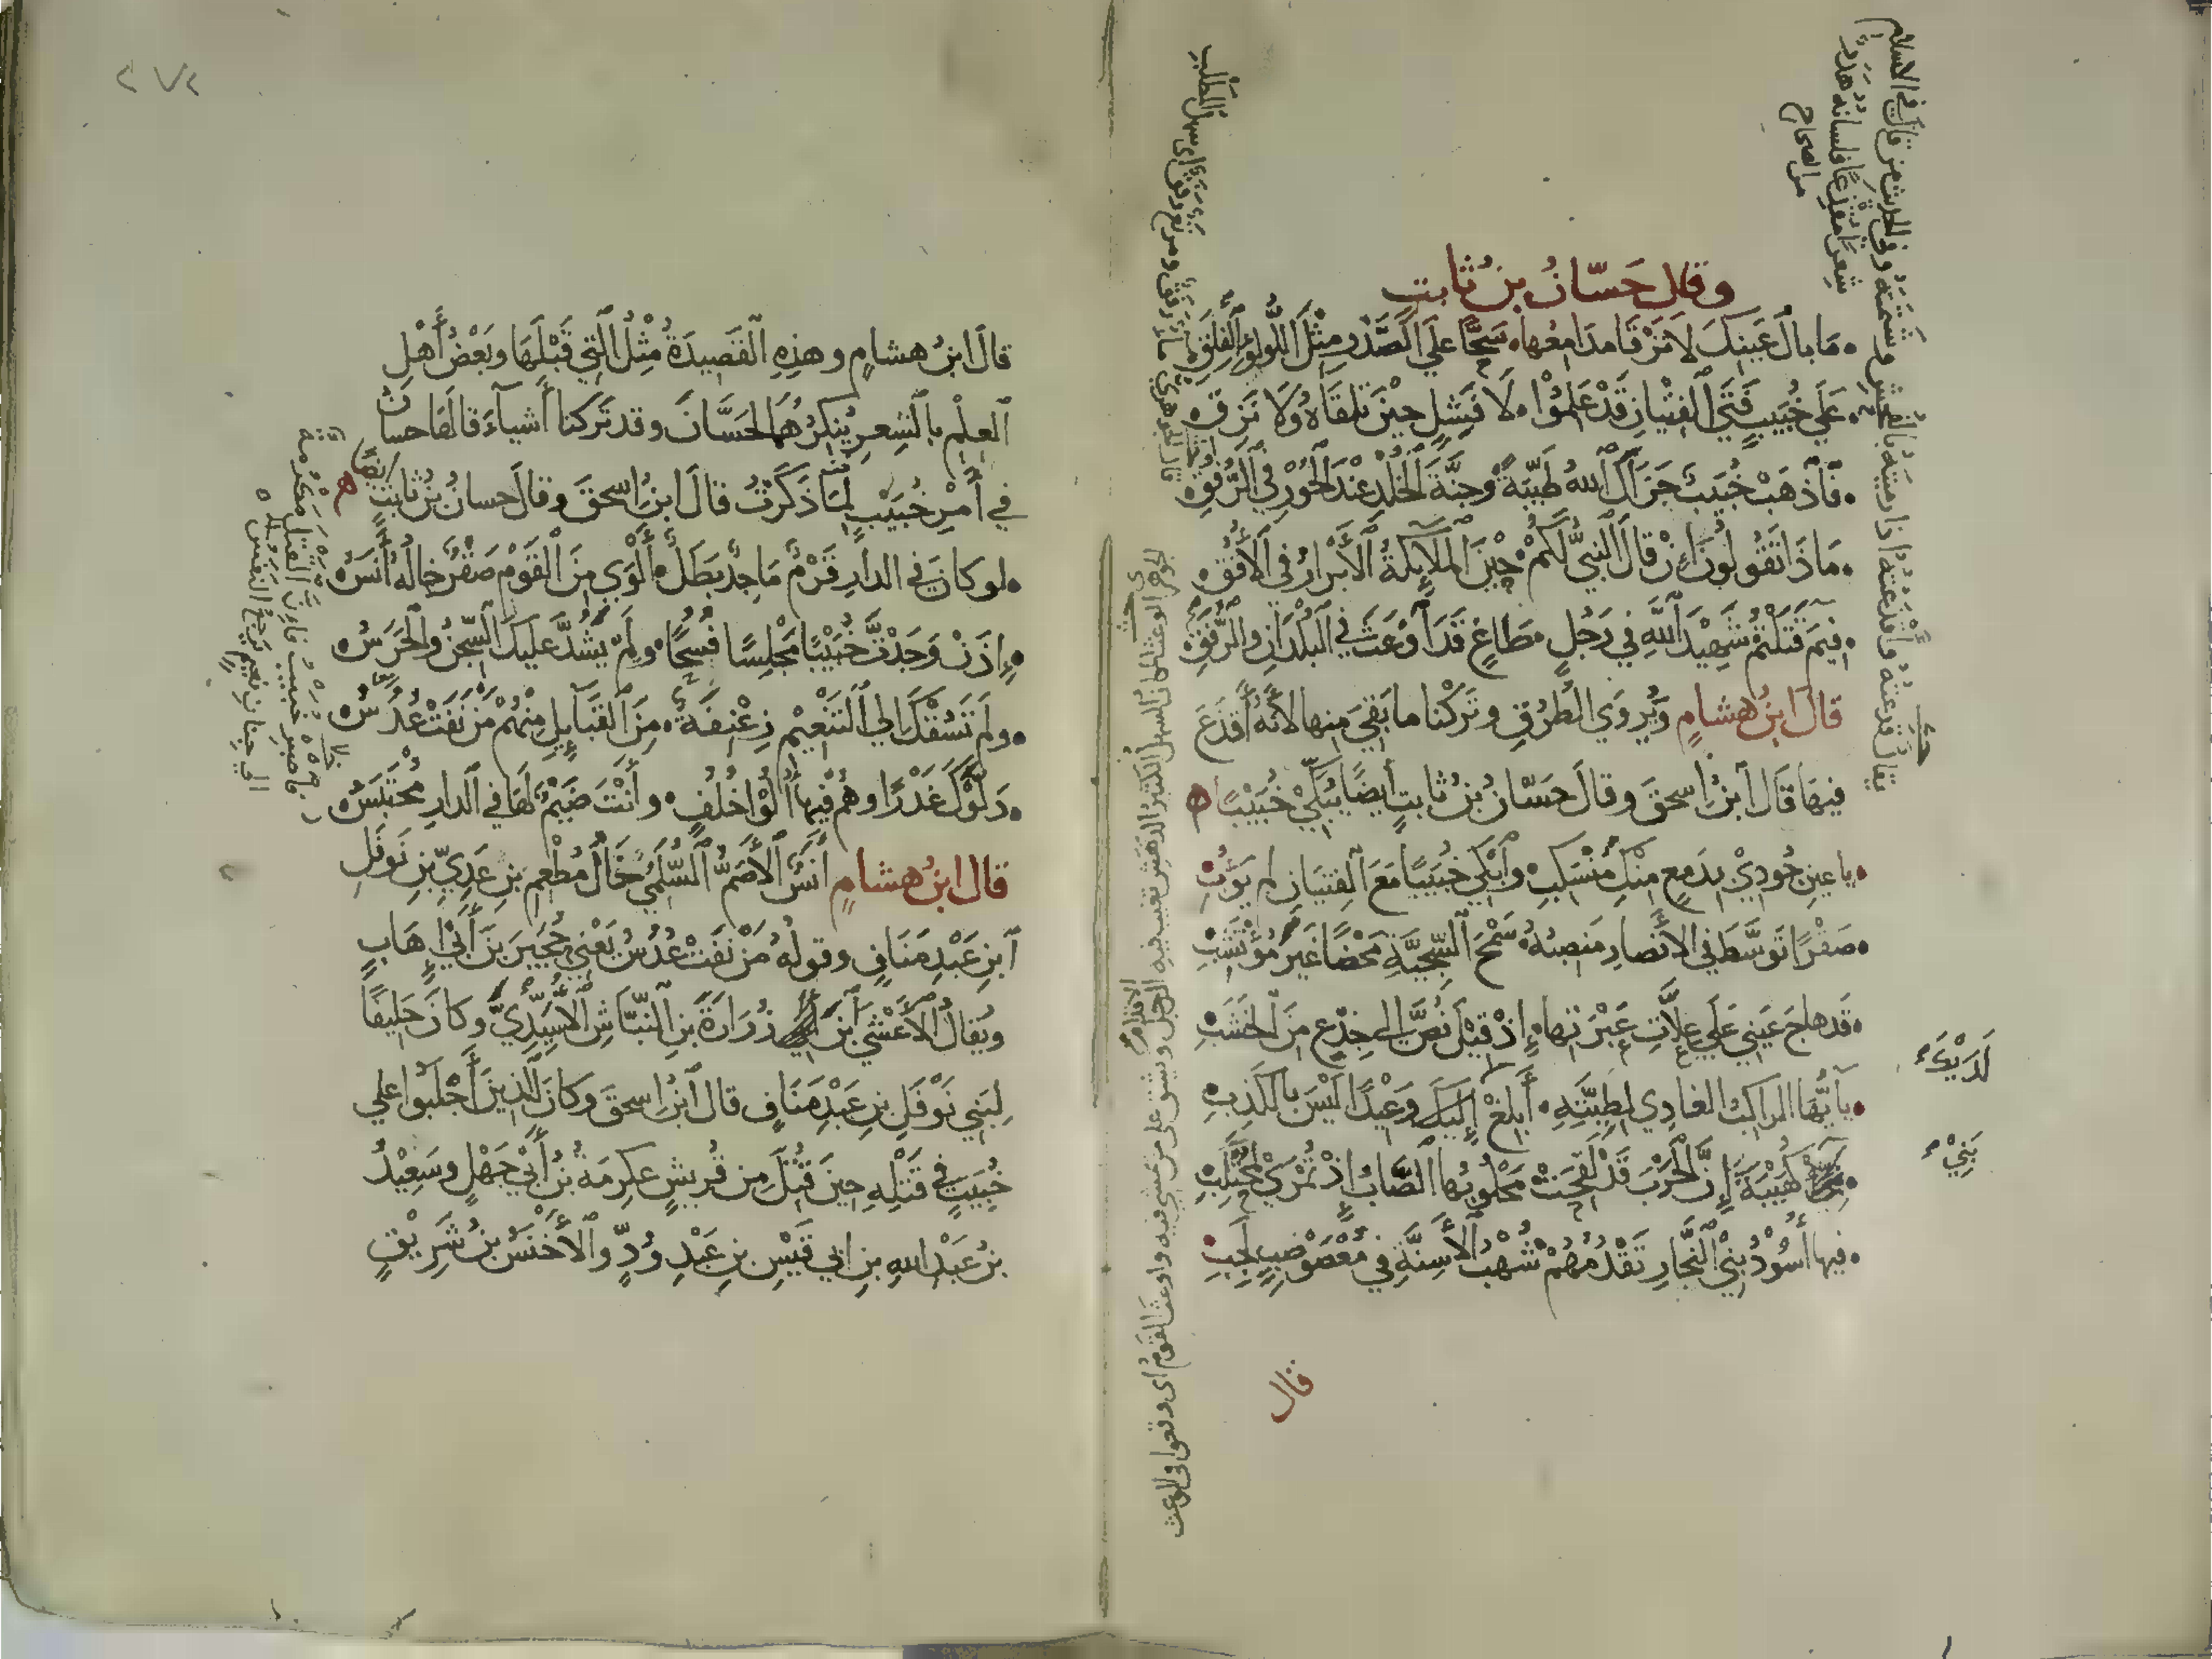 وقال حسّانُ بنُ ثابتٍ
مَا بالُ عَينِكَ لا تَرْقَا مدَامِعُها سَحًّا علَي الصَّدْرِ مِثْلَ اللُّولُؤِ الفَلِقِ
عَلَي خُبَيبٍ فَتَي الفِتْيانِ قَدْ عَلِمُوْا لَا فَشِلٍ حِيْنَ تلقَاهُ وَلَا نَزِقِ
فَاذْهَبْ خُبَيْبُ جَزَاكَ اللهُ طَيِّبَةً وَجنَّةَ الخُلْدِ عِنْدَ الحُوْرِ في الرُّفُقِ
مَاذَا تَقُولُونَ إنْ قالَ النَّبيُّ لَكُمْ حِيْنَ المَلَايِكَةُ الأَبْرَارُ في الأُفُقِ
فِيمَ قَتَلْتُمْ شَهِيْدَ اللهِ في رَجُلٍ طَاغٍ قَدَ أوْعَثَ في البُلْدَانِ والرُّفَقِ
قالَ ابنُ هشامٍ وَيُروَي الطُرُقِ وتَركْنا ما بَقِيَ منها لأنَّهُ أقْذَعَ
فيهَا قَالَ ابْنُ اسحقَ وقالَ حَسّانُ بْنُ ثابتٍ أيضًا يُبَكِّي خُبَيْبًا ه
يا عينِ جُودِيْ بدَمعٍ مِنكِ مُنْسَكِبِ وابْكِي خُبَيبًا مَعَ الفِتيَانِ لم يَؤُبِ
صَقْرًا تَوَسَّطَ في الأَنْصَارِ مَنصِبُهُ سَمْحَ السَّجِيَّةِ مَحْضًا غَيرَ مُؤْتَشِبِ
قَد هاجَ عَينِي عَلَي عِلَّاتِ عَبْرَتِها إذْ قِيْلَ نُصَّ الي جِذْعٍ مِنَ الخَشَبِ
يأيُّها الراكبُ الغادِي لِطِيَّتِهِ أبلِغْ إِلَيكَ وَعِيْدًا لَيْسَ بِالكَذِبِ
كُهَيْبَةَ إنَّ الحَرْبَ قَدْ لَقِحَتْ مَحْلُوبُها الصَّابُ إذْ تُمْرَيْ لِمُحْتَلِبِ
فيها أُسُوْدُ بَنِيْ النَّجَّارِ تَقْدُمُهُمْ شُهْبُ الأَسِنَّةِ في مُعْصَوْصِبٍ لَجِبِ
قال
لَدَيْكَ
بَنِيْ
من الصحاح
٢٧٢
قالَ ابنُ هشامٍ وهذِهِ القَصِيدَةُ مِثْلُ الّتي قَبْلَهَا وبَعْضُ أَهْلِ
العِلْمِ بالشِعرِ يُنكِرُهُمَا لحَسَّانَ وقد تَركنا أشياءَ قالَهَا حسانُ
في أمْرِ خُبَيْبٍ لِمَا ذَكَرْتُ قالَ ابنُ اسحقَ وقالَ حسانُ بنُ ثابتٍ ايضًا ه
لو كانَ في الدارِ قَرْمٌ مَاجِدٌ بَطَلٌ أَلْوَي مِنَ القَوْمِ صَقْرٌ خالُهُ أَنَسُ
إذَنْ وَجَدْتَ خُبَيْبًا مَجْلِسًا فُسُحًا ولَمْ يُشَدَّ عليكَ السِّجنُ والحَرَسُ
ولَمْ تَسُقْكَ الي التَنْعِيْمِ زِعْنِفَةٌ مِنَ القَبَايِلِ مِنْهُمْ مَنْ نَفَتْ عُدُسُ
دَلَّوْكَ غَدْرًا وهُمْ فيها أُلُوْا خُلُفٍ وأنْتَ ضَيْمٌ لَهَا في الدارِ مُحْتَبَسُ
قال ابنُ هشامٍ أنَسٌ الأصَمُّ السُّلَمِيُّ خَالُ مُطْعِمِ بنِ عَدِيِّ بنِ نَوفَلِ
ابنِ عَبْدِ مَنَافٍ وقولُهُ مَنْ نَفَتْ عُدُسُ يَعْنِي حُجَيرَ بنَ أبيْ إِهَابٍ
ويُقالُ الأَعْشَي ابنَ زُرَارَةَ بنِ النّبّاشِ الأُسَيِّدِيَّ وكانَ حَلِيفًا
لِبَنِي نَوْفَلِ بنِ عَبْدِ مَنَافٍ قال ابْنُ اسحقَ وَكانَ الّذينَ أَجْلَبُوا علي
خُبَيبٍ في قَتْلِهِ حِيَن قُتِلَ مِن قُريشٍ عِكرِمَةُ بْنُ أبيْ جَهْلٍ وسَعِيْدُ
بنُ عَبْدِ اللهِ بنِ ابي قَيْسِ بنِ عَبْدِ وُدٍّ والأخْنَسُ بنُ شَرِيْقٍ